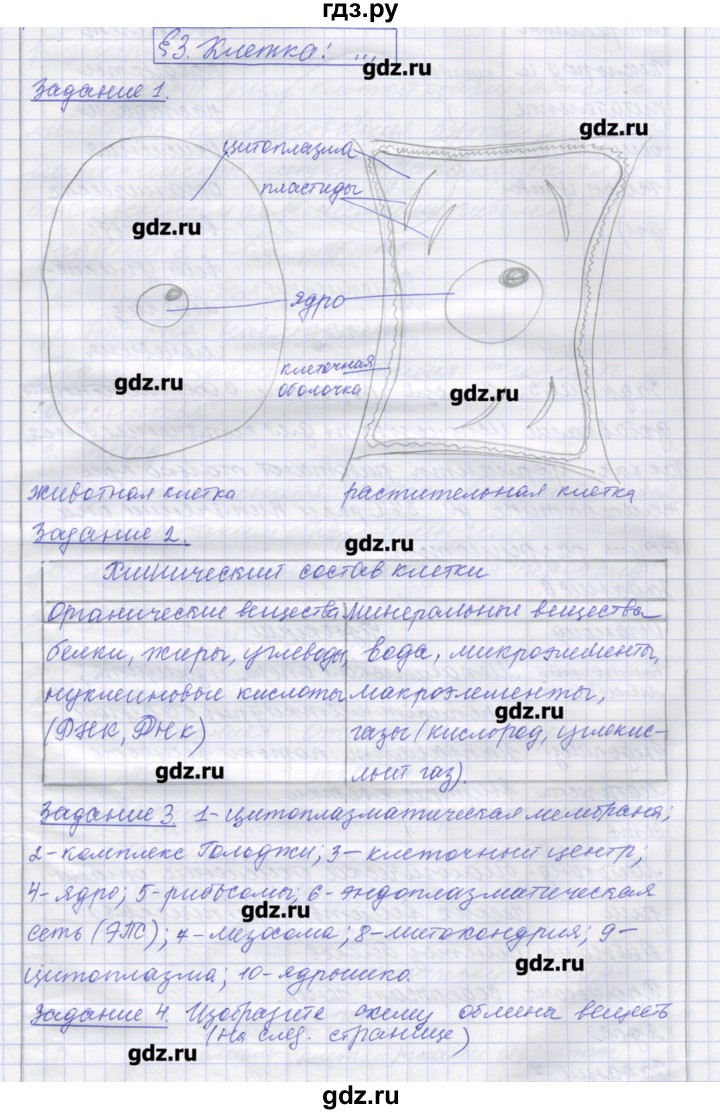 гдз.ру
§3. Клетка: ...
gdz.ru
Задание 1.
gdz.ru
цитоплазма
пластиды
gdz.ru
ядро
клеточная
оболочка
gdz.ru
gdz.ru
животная клетка
растительная клетка
Задание 2.
gdz.ru
Химический состав клетки
Органические вещества
Минеральные вещества
белки, жиры, углеводы,
нуклеиновые кислоты
(РНК, ДНК)
вода, микроэлементы,
макроэлементы,
gdz.ru
газы (кислород, углекис-
лый газ).
gdz.ru
Задание 3. 1-цитоплазматическая мембрана;
2-комплекс Гольджи; 3-клеточный центр;
4-ядро; 5-рибосомы; 6-эндоплазматическая
gdz.ru
сеть (ЭПС); 7-лизосома; 8-митохондрия; 9-
цитоплазма; 10-ядрышко.
gdz.ru
Задание 4. Изобразите схему обмена веществ
(на след. странице)
gdz.ru
gdz.ru